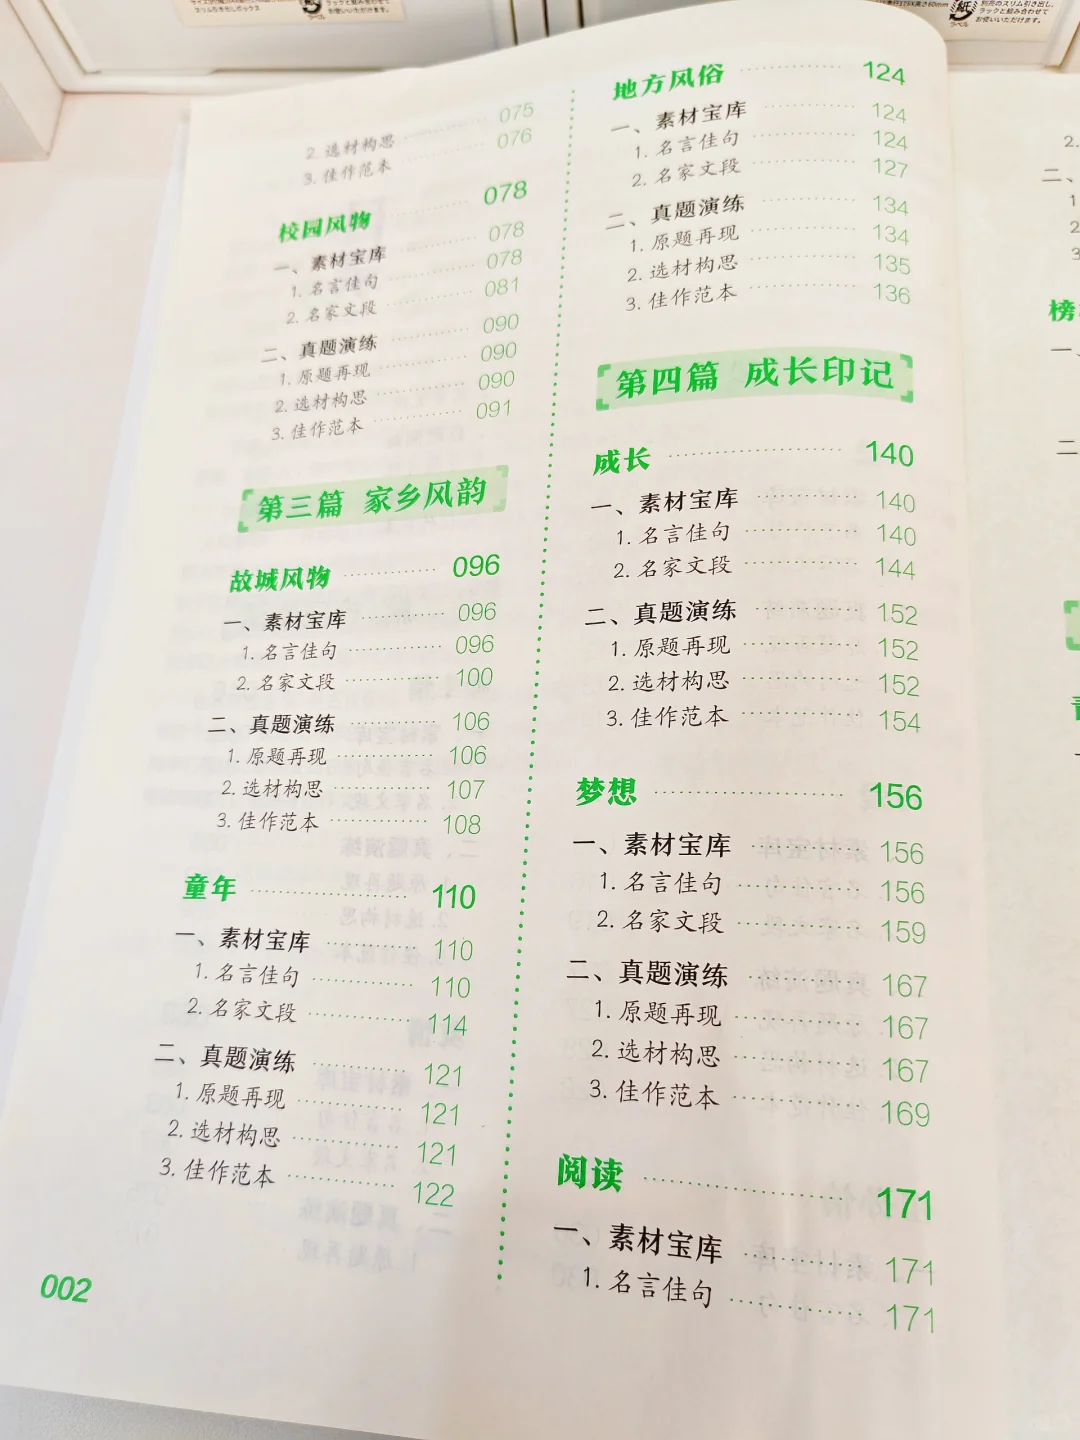 2. 选材构思 075
3. 佳作范本 076
校园风物 078
一、素材宝库 078
1. 名言佳句 078
2. 名家文段 081
二、真题演练 090
1. 原题再现 090
2. 选材构思 090
3. 佳作范本 091
第三篇 家乡风韵
故城风物 096
一、素材宝库 096
1. 名言佳句 096
2. 名家文段 100
二、真题演练 106
1. 原题再现 106
2. 选材构思 107
3. 佳作范本 108
童年 110
一、素材宝库 110
1. 名言佳句 110
2. 名家文段 114
二、真题演练 121
1. 原题再现 121
2. 选材构思 121
3. 佳作范本 122
002
地方风俗 124
一、素材宝库 124
1. 名言佳句 124
2. 名家文段 127
二、真题演练 134
1. 原题再现 134
2. 选材构思 135
3. 佳作范本 136
第四篇 成长印记
成长 140
一、素材宝库 140
1. 名言佳句 140
2. 名家文段 144
二、真题演练 152
1. 原题再现 152
2. 选材构思 152
3. 佳作范本 154
梦想 156
一、素材宝库 156
1. 名言佳句 156
2. 名家文段 159
二、真题演练 167
1. 原题再现 167
2. 选材构思 167
3. 佳作范本 169
阅读 171
一、素材宝库 171
1. 名言佳句 171
2.
二、
1
2
3
榜
一、
二